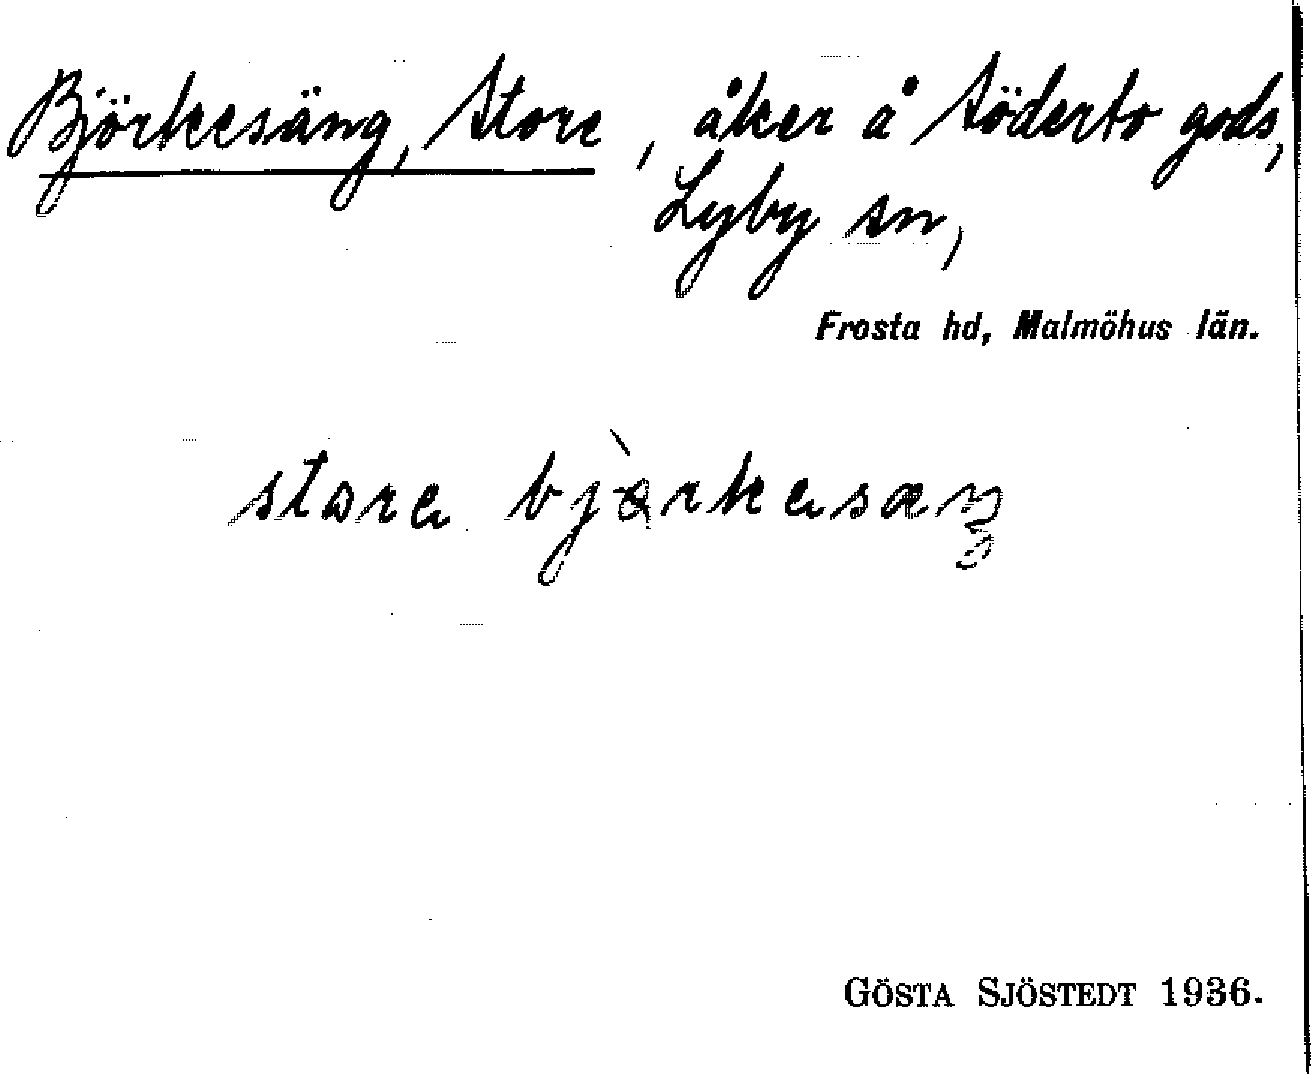 Björkesäng, Store, åker å Söderto gods,
Lyby sn,
Frosta hd, Malmöhus län.
GÖSTA SJÖSTEDT 1936.